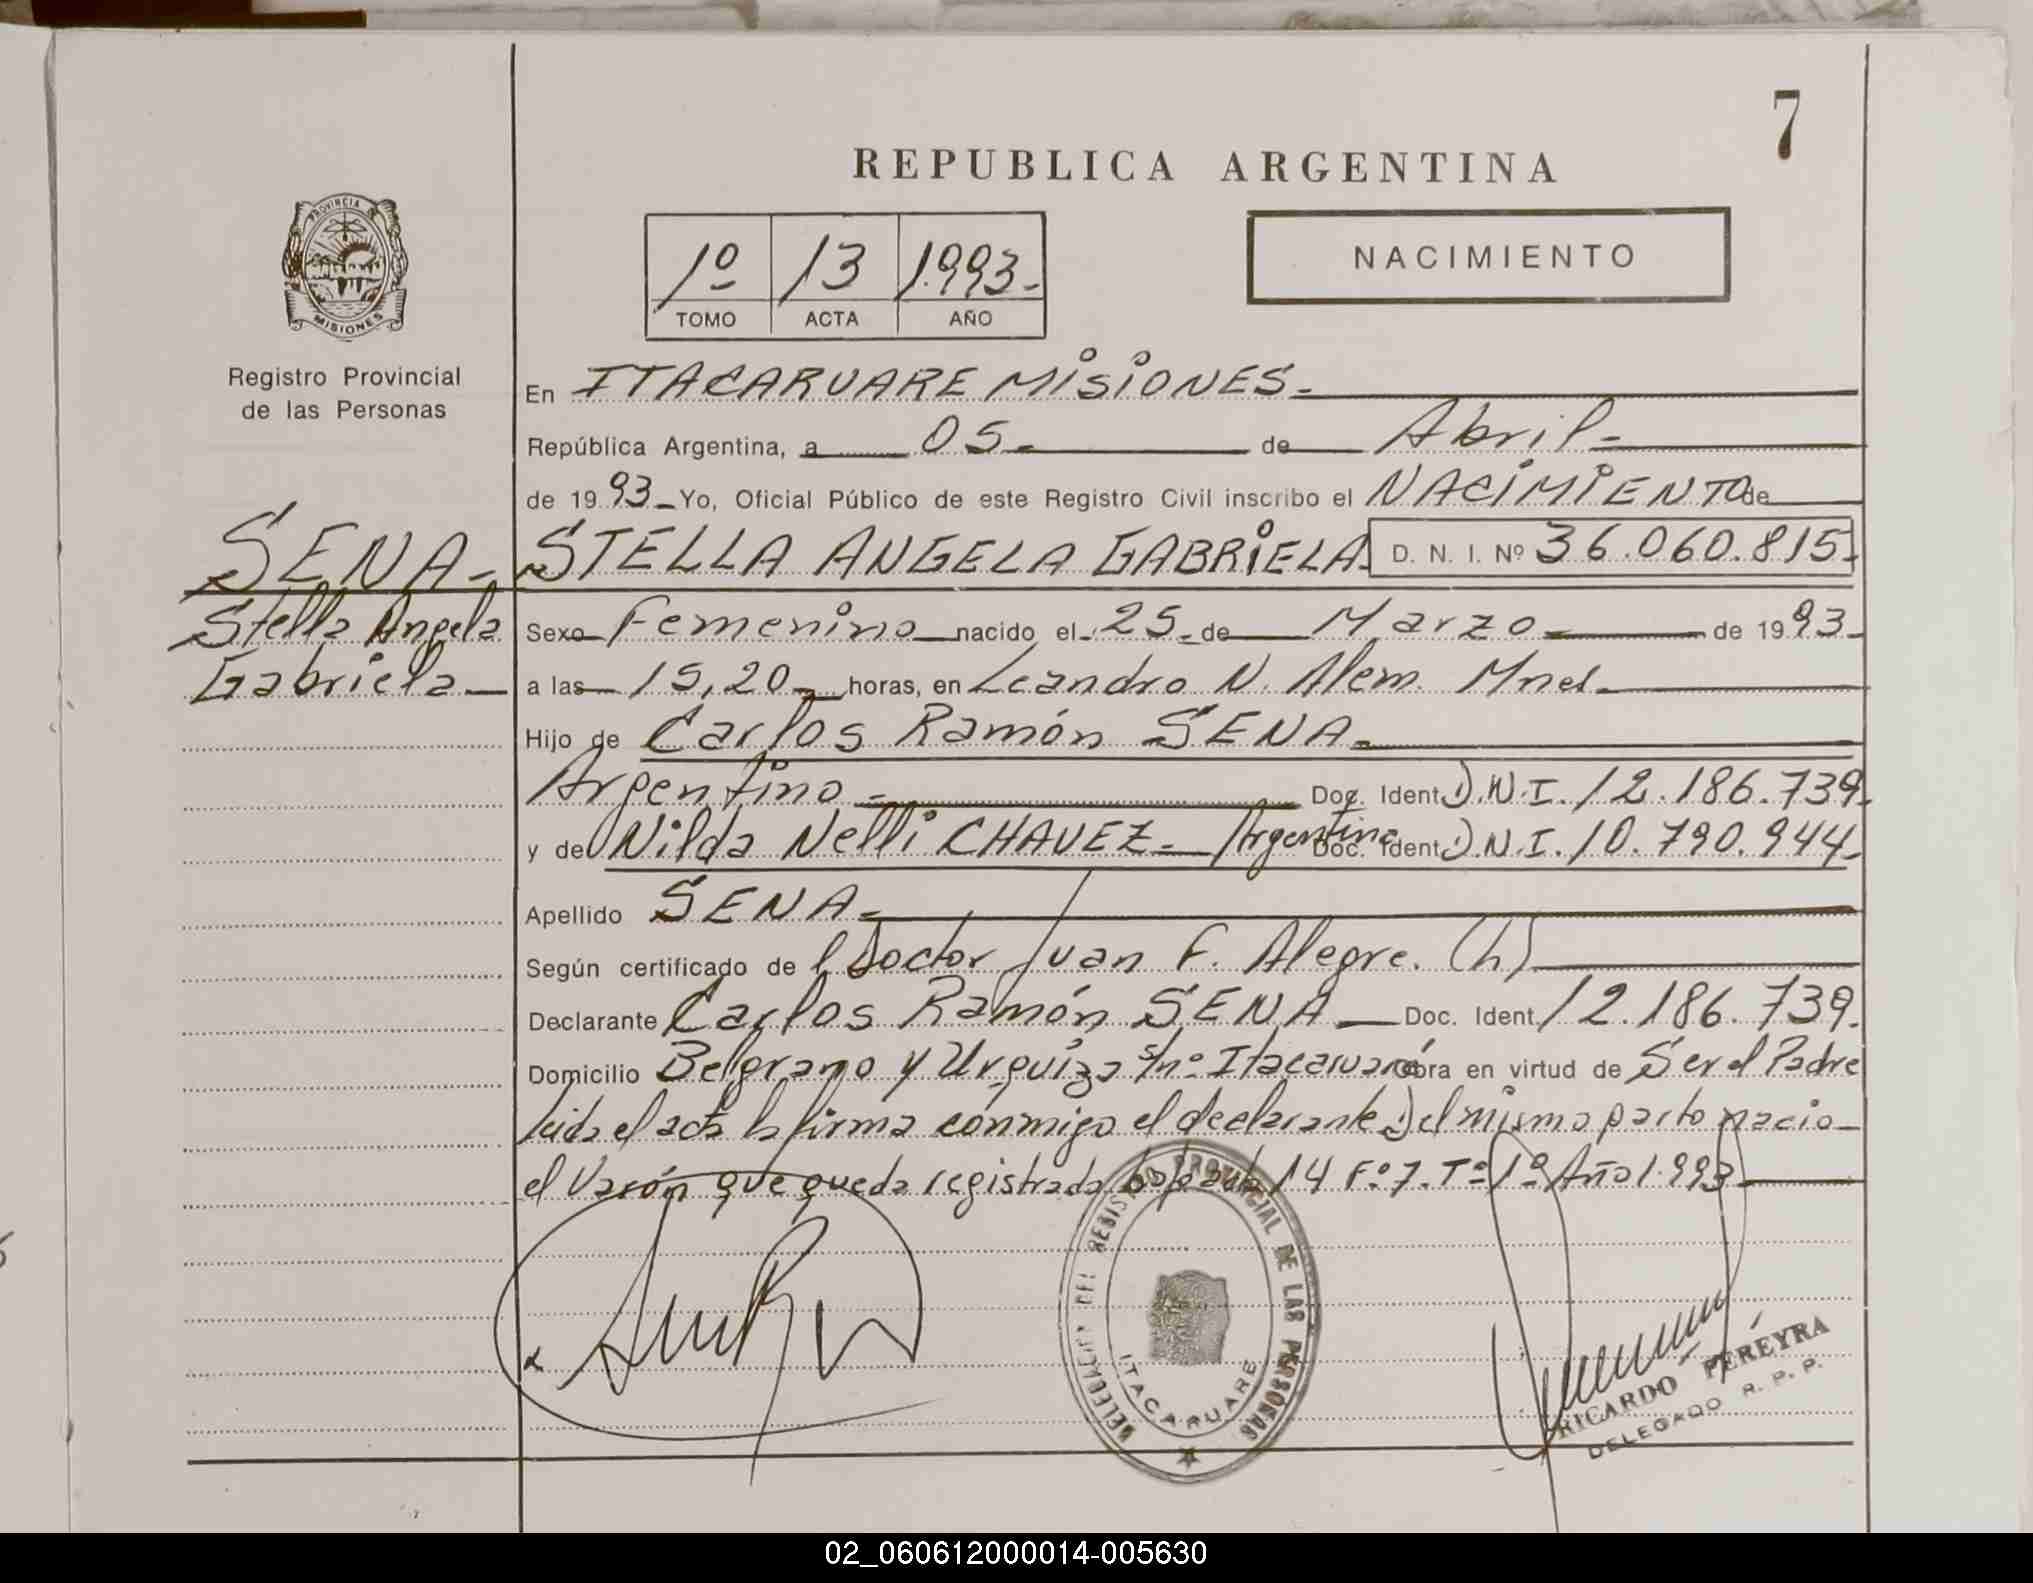 7
REPUBLICA ARGENTINA
PROVINCIA DE
MISIONES
Registro Provincial
de las Personas
1º 13 1.993-
TOMO ACTA AÑO
NACIMIENTO
En ITACARUARE MISIONES-
República Argentina, a 05- de Abril-
de 1993- Yo, Oficial Público de este Registro Civil inscribo el NACIMIENTO de
SENA- STELLA ANGELA GABRIELA- D. N. I. Nº 36.060.815-
Stella Angela Sexo Femenino nacido el 25- de Marzo- de 1993-
Gabriela- a las 15,20- horas, en Leandro N. Alem. Mnes-
Hijo de Carlos Ramón SENA-
Argentino- Doc. Ident. D.N.I. 12.186.739-
y de Nilda Nelli CHAVEZ- Argentina Doc. Ident. D.N.I. 10.790.944-
Apellido SENA-
Según certificado de l Doctor Juan F. Alegre. (h)
Declarante Carlos Ramón SENA- Doc. Ident. 12.186.739.
Domicilio Belgrano y Urquiza s/nº Itacaruaré obra en virtud de Ser el Padre
leida el acta la firma conmigo el declarante Del mismo parto nacio-
el Varón que queda registrado bajo acta 14 Fº 7. Tº 1º Año 1.993-
DELEGACION DEL REGISTRO PROVINCIAL DE LAS PERSONAS
ITACARUARE
RICARDO PEREYRA
DELEGADO R. P. P.
02_060612000014-005630